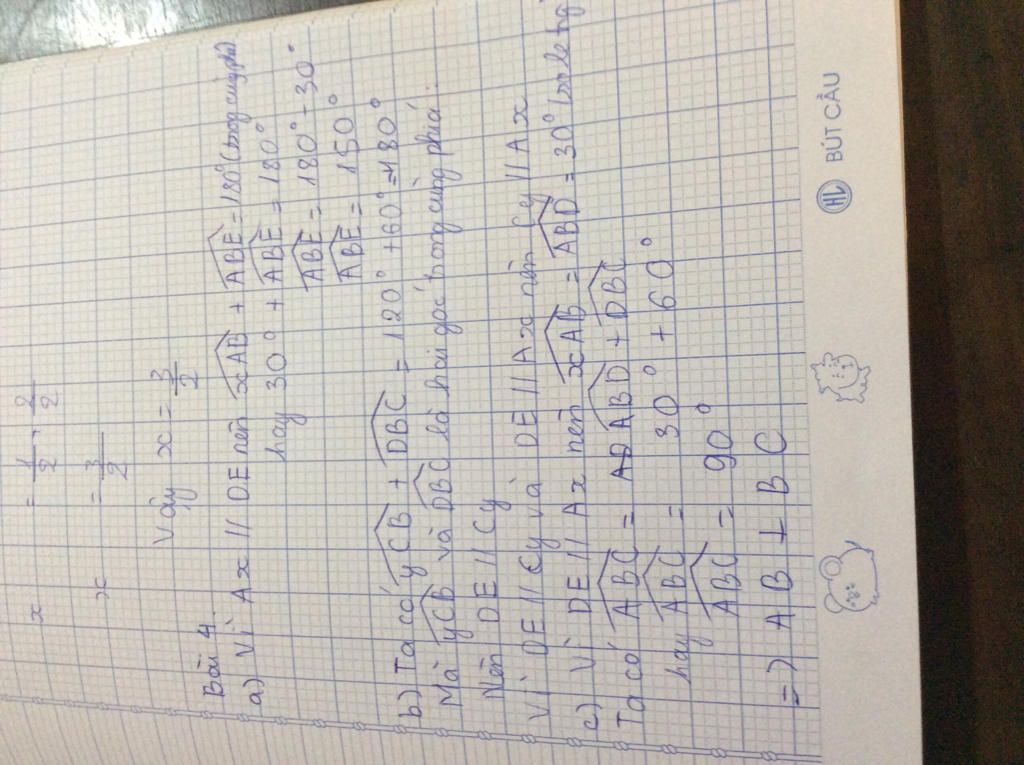 x = 1/2 . 2/2
x = 3/2
Vậy x = 3/2
Bài 4.
a) Vì Ax // DE nên xAB + ABE = 180° (trong cùng phía)
hay 30° + ABE = 180°
ABE = 180° - 30°
ABE = 150°
b) Ta có yCB + DBC = 120° + 60° = 180°
Mà yCB và DBC là hai góc trong cùng phía.
Nên DE // Cy
Vì DE // Cy và DE // Ax nên Cy // Ax
c) Vì DE // Ax nên xAB = ABD = 30° (so le
Ta có ABC = ABD + DBC
hay ABC = 30° + 60°
ABC = 90°
=> AB ⊥ BC
HL BÚT CẦU